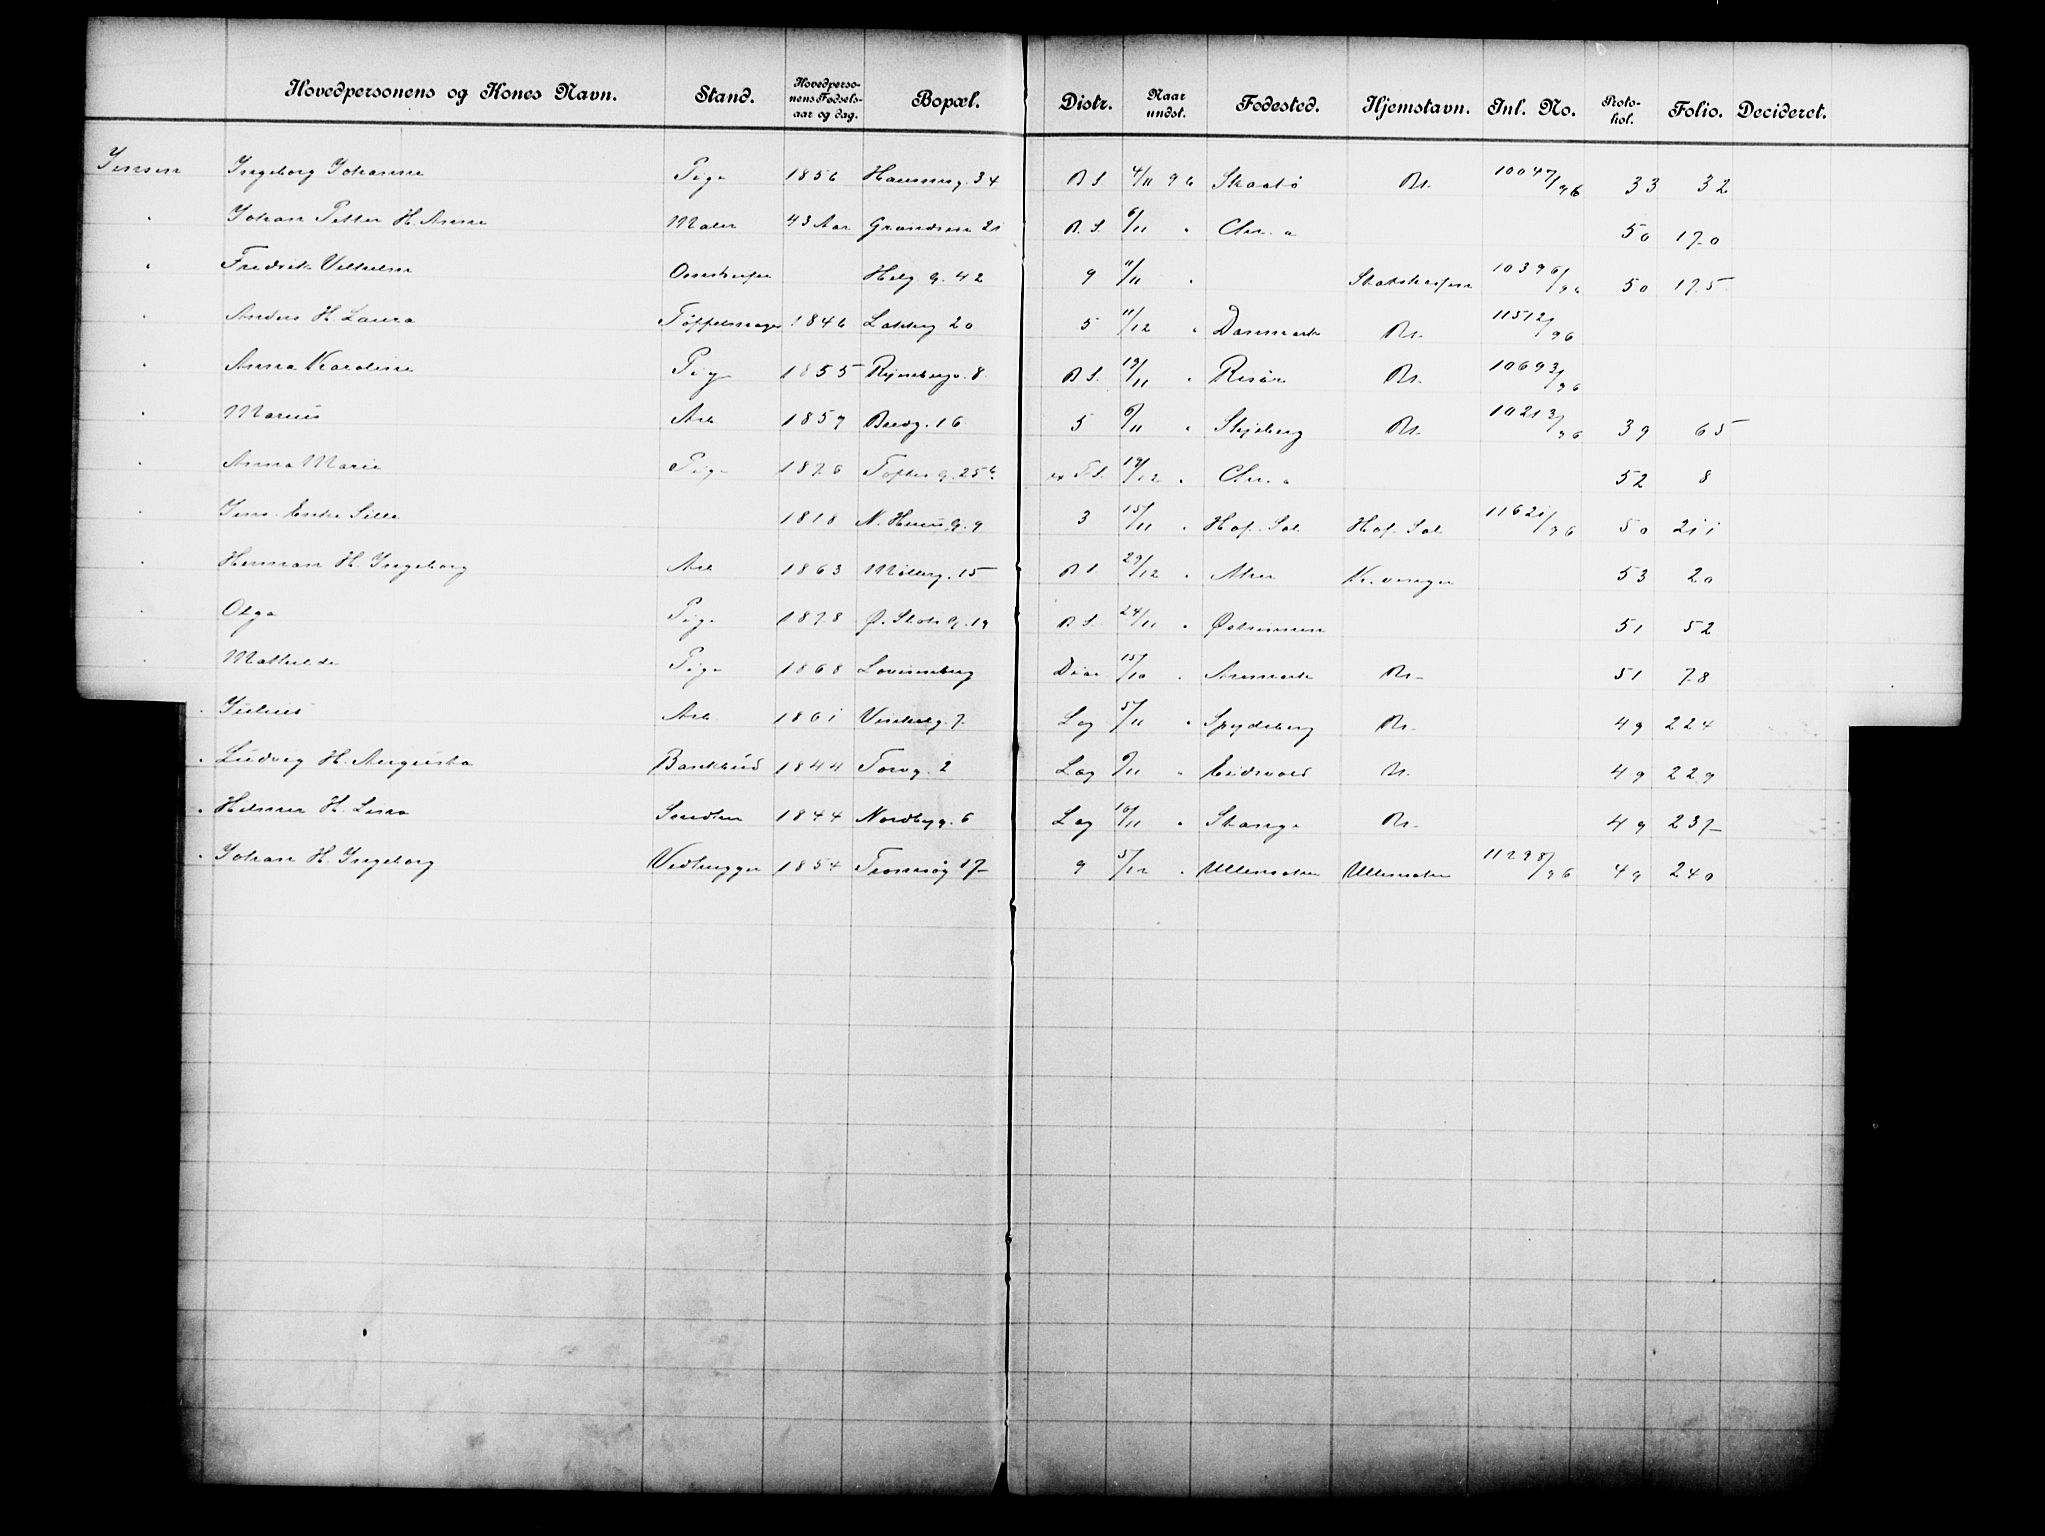 Hovedpersonens og Kones Navn. Stand. Hovedperso-nens Fødsels-aar og dag. Bopæl. Distr. Naar undst. Fødested. Hjemstavn. Jnl. No. Proto-kol. Folio. Decideret.
Jensen Ingeborg Johanne Pige 1856 Hausmsg. 34 B S. 4/11 96 Skaatø Bt. 10047/96 33 32
" Johan Petter H. Anna Maler 43 Aar Grændsen 21 B. S. 6/11 " Chr. a 50 170
" Fredrik Vilhelm Helg. g. 42 9 11/11 " 10396/96 50 175
" Anders H. Laura Tøffelmager 1846 Lakkeg 20 5 11/12 " Danmark Bt. 11512/96
" Anna Karoline Pige 1855 8. B S. 19/11 " Risør Bt. 10693/96
" Marius Arb 1859 Bredg. 16 5 6/11 " Skjeberg Bt. 10213/96 39 65
" Anna Marie Pige 1876 Toftes g. 25b 19/12 " Chr. a 52 8
" 1818 N. 9 3 15/11 " Hof. Sol Hof. Sol 11621/96 50 211
" Herman H. Ingeborg Arb 1863 Møllerg. 15 B S 29/12 " Kr.vinger 53 20
" Olga Pige 1878 Ø. Slots g. 19 B S. 24/11 " 51 52
" Mathilde Pige 1868 Lovisenberg Dia. 15/10 " Aremark Bt. 51 78
" Julius Arb 1861 7. Log 5/11 " Spydeberg Bt. 49 224
" Ludvig H. Augusta Bankbud 1844 Torvg. 2 Log 9/11 " Eidsvold Bt. 49 229
" Helmer H. Lina 1844 Nordbyg. 6 Log 10/11 " Stange Bt. 49 237
" Johan H. Ingeborg Vedhugger 1854 Tromsøg 17 9 5/12 " Ullensaker Ullensaker 11298/96 49 240